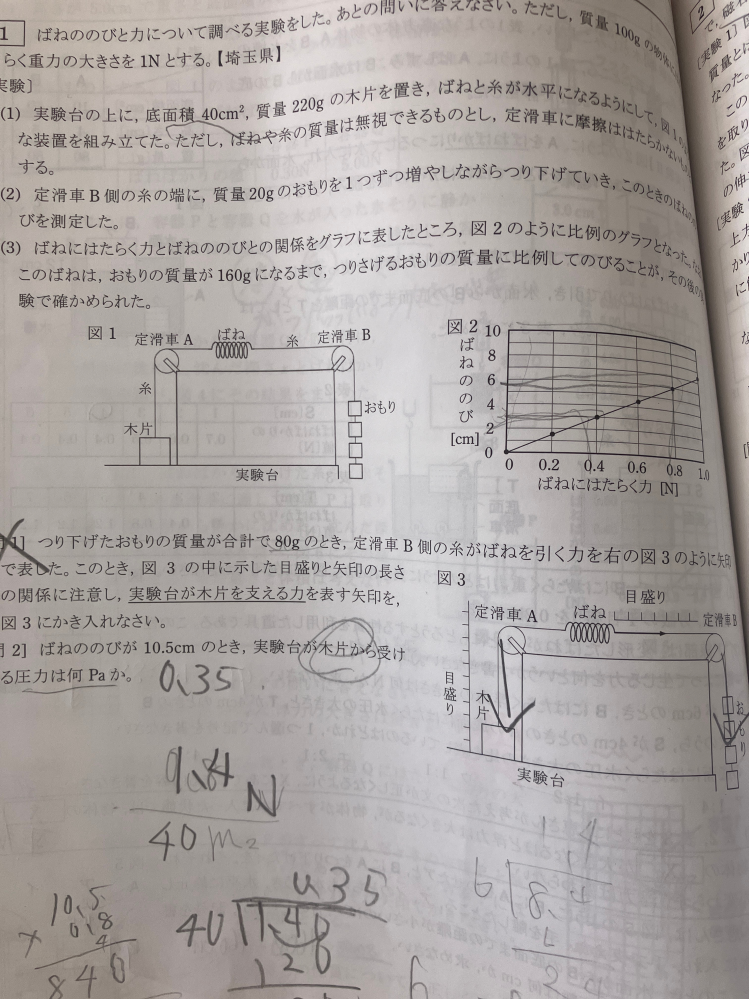 1 ばねののびと力について調べる実験をした。あとの問いに答えなさい。ただし,質量100gの物体に
らく重力の大きさを1Nとする。【埼玉県】
実験]
(1) 実験台の上に,底面積40cm²,質量220gの木片を置き,ばねと糸が水平になるようにして,図1の
な装置を組み立てた。ただし,ばねや糸の質量は無視できるものとし,定滑車に摩擦ははたらかないも
する。
(2) 定滑車B側の糸の端に,質量20gのおもりを1つずつ増やしながらつり下げていき,このときのばねの
びを測定した。
(3) ばねにはたらく力とばねののびとの関係をグラフに表したところ,図2のように比例のグラフとなった。
このばねは,おもりの質量が160gになるまで,つりさげるおもりの質量に比例してのびることが,その後の
験で確かめられた。
図1
定滑車A ばね 糸 定滑車B
糸
木片
おもり
実験台
図2
ばねののび
[cm]
10
8
6
4
2
0
0 0.2 0.4 0.6 0.8 1.0
ばねにはたらく力 [N]
1] つり下げたおもりの質量が合計で80gのとき,定滑車B側の糸がばねを引く力を右の図3のように矢印
で表した。このとき,図3の中に示した目盛りと矢印の長さ
の関係に注意し,実験台が木片を支える力を表す矢印を,
図3にかき入れなさい。
問2] ばねののびが10.5cmのとき,実験台が木片から受け
る圧力は何Paか。
0.35
図3
目盛り
定滑車A ばね 定滑車B
目盛り
木片
おもり
実験台
N
40
10.5
0.8
4
840
40
1.40
120
0.35
1.4
6
8.4
2
質量と
なった。
この
を取り
た。図
の伸
[実験
上力
かり
に